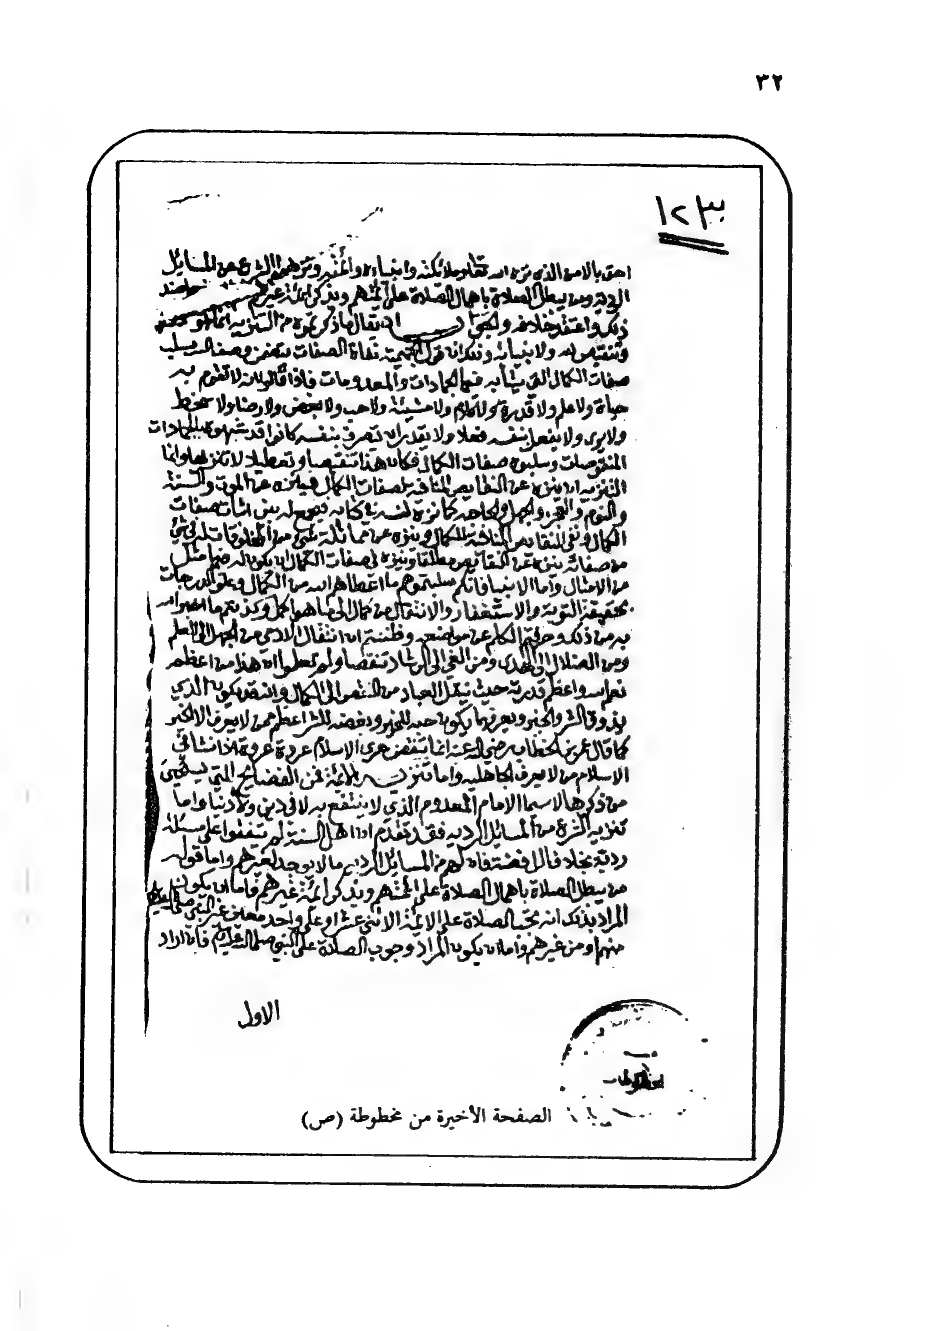 ٣٢
١٢٣
احق بالامن الذي نزه الله تعالى وملائكته وانبياءه وائمته ونزههم الشرع عن المسائل
الردية ومن يبطل الصلاة باهمال الصلاة على ائمتهم ويذكر ائمة غيرهم
ذلك واعتقد خلافه والجواب ان يقال ما ذكرتموه من التنزيه انما هو
وتنقيص لله ولانبيائه وذلك ان قول الجهمية نفاة الصفات يتضمن وصف الله بسلب
صفات الكمال التي يشابه فيها الجمادات والمعدومات فاذا قالوا ان الله لا تقوم به
حياة ولا علم ولا قدرة ولا كلام ولا مشيئة ولا حب ولا بغض ولا رضا ولا سخط
ولا يرى ولا يفعل بنفسه فعلا ولا يقدر ان يتصرف بنفسه كانوا قد شبهوه بالجمادات
المنقوصات وسلبوه صفات الكمال فكان هذا تنقيصا وتعطيلا لا تنزيها وانما
التنزيه ان ينزه عن النقايص المنافية لصفات الكمال فينزه عن الموت والسنة
والنوم والعجز والجهل والحاجة كما نزه نفسه في كتابه فيجمع له بين اثبات صفات
الكمال ونفي النقايص المنافية للكمال وينزه عن مماثلة شيء من المخلوقات له في شيء
من صفاته وينزه عن النقايص مطلقا وينزه في صفات الكمال ان يكون له فيها مثل
من الامثال واما الانبيا فانكم سلبتموهم ما اعطاهم الله من الكمال وعلو الدرجات
بحقيقة التوبة والاستغفار والانتقال من كمال الى ما هو اكمل وكذبتم ما اخبر الله
به من ذلك وحرفتم الكلم عن مواضعه وظننتم ان انتقال الادمي من الجهل الى العلم
ومن الضلال الى الهدى ومن الغي الى الرشاد تنقصا ولم تعلموا ان هذا من اعظم
نعم الله واعظم قدرته حيث ينقل العباد من النقص الى الكمال وانه قد يكون الذي
يذوق الشر والخير ويعرفهما يكون حبه للخير وبغضه للشر اعظم ممن لا يعرف الا الخير
كما قال عمر بن الخطاب رضي الله عنه انما تنقض عرى الاسلام عروة عروة اذا نشا في
الاسلام من لا يعرف الجاهلية واما تنزيه الائمة فمن الفضائح التي يستحيى
من ذكرها لا سيما الامام المعدوم الذي لا ينتفع به لا في دين ولا دنيا واما
تنزيه الشرع من المسائل الردية فقد تقدم ان اهل السنة لم يتفقوا على مسئلة
ردية بخلاف الرافضة فان لهم من المسائل الردية ما لا يوجد لغيرهم واما قوله
من يبطل الصلاة باهمال الصلاة على ائمتهم ويذكر ائمة غيرهم فاما ان يكون
المراد بذلك انه تجب الصلاة على الائمة الاثني عشر او على واحد معين غير النبي صلى الله عليه
منهم او من غيرهم واما ان يكون المراد وجوب الصلاة على النبي صلى الله عليه وسلم فان اراد
الاول
الصفحة الأخيرة من مخطوطة (ص)